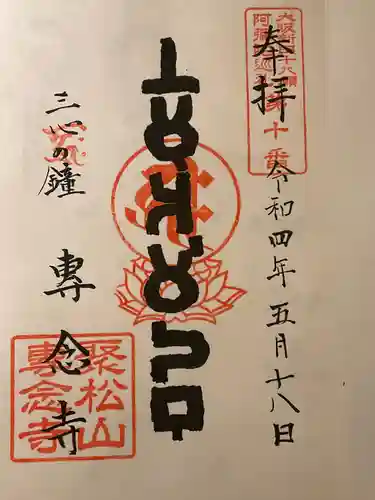 大阪新四十八願
阿弥陀巡礼
第十番
奉拝
令和四年五月十八日
三心の鐘
專念寺
聚松山
專念寺